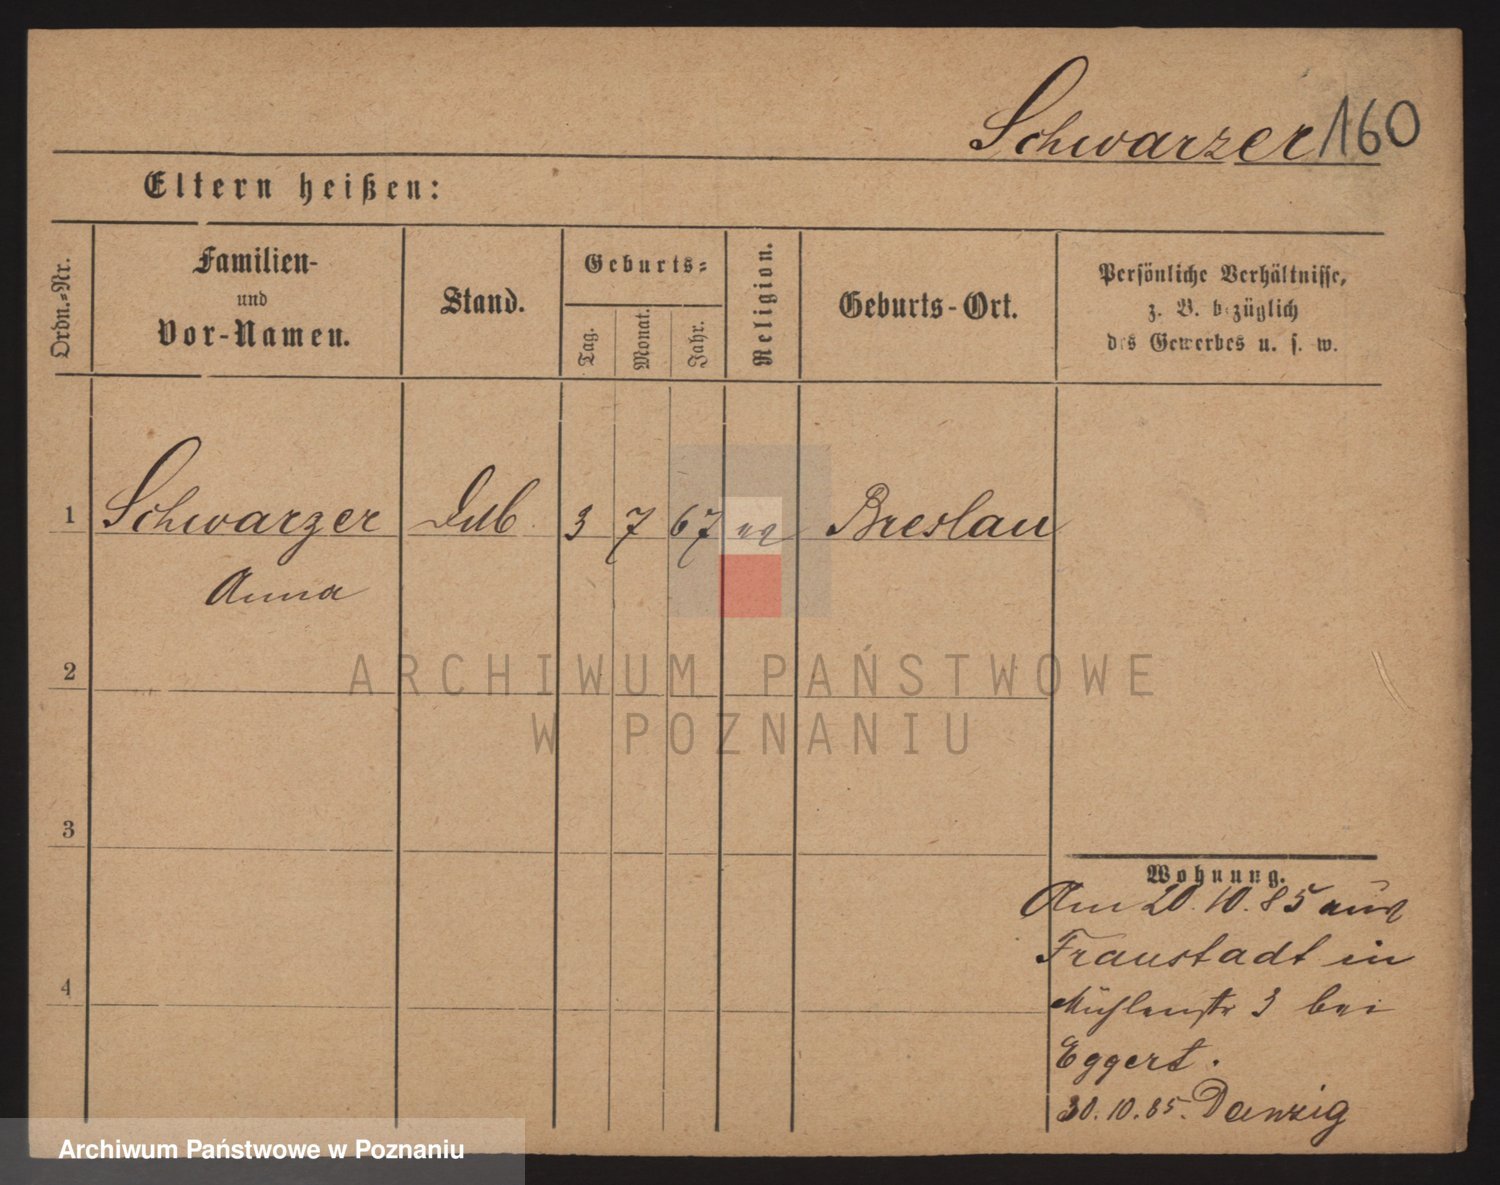 Schwarzer 160
Eltern heißen:
Ordn.-Nr.
Familien-
und
Vor-Namen.
Stand.
Geburts-
Tag.
Monat.
Jahr.
Religion.
Geburts-Ort.
Persönliche Verhältnisse,
z. B. bezüglich
des Gewerbes u. s. w.
1 Schwarzer 3 7 67 Breslau
Anna
2
3
4
Wohnung.
Am 20.10.85 aus
Fraustadt in
Mühlenstr 3 bei
Eggert.
30.10.85. Danzig
ARCHIWUM PAŃSTWOWE
W POZNANIU
Archiwum Państwowe w Poznaniu